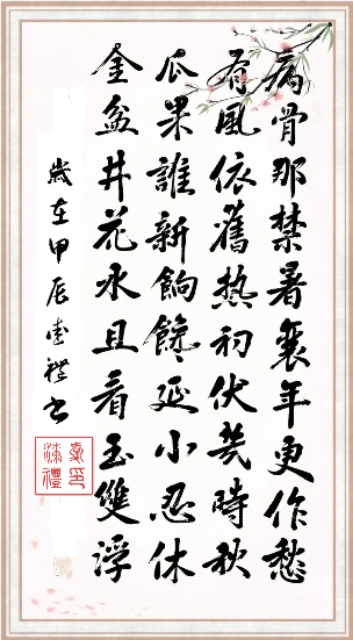 病骨那禁暑衰年更作愁
有風依舊热初伏幾時秋
瓜果誰新餉饞延小忍休
金盆井花水且看玉雙浮
歲在甲辰禮书